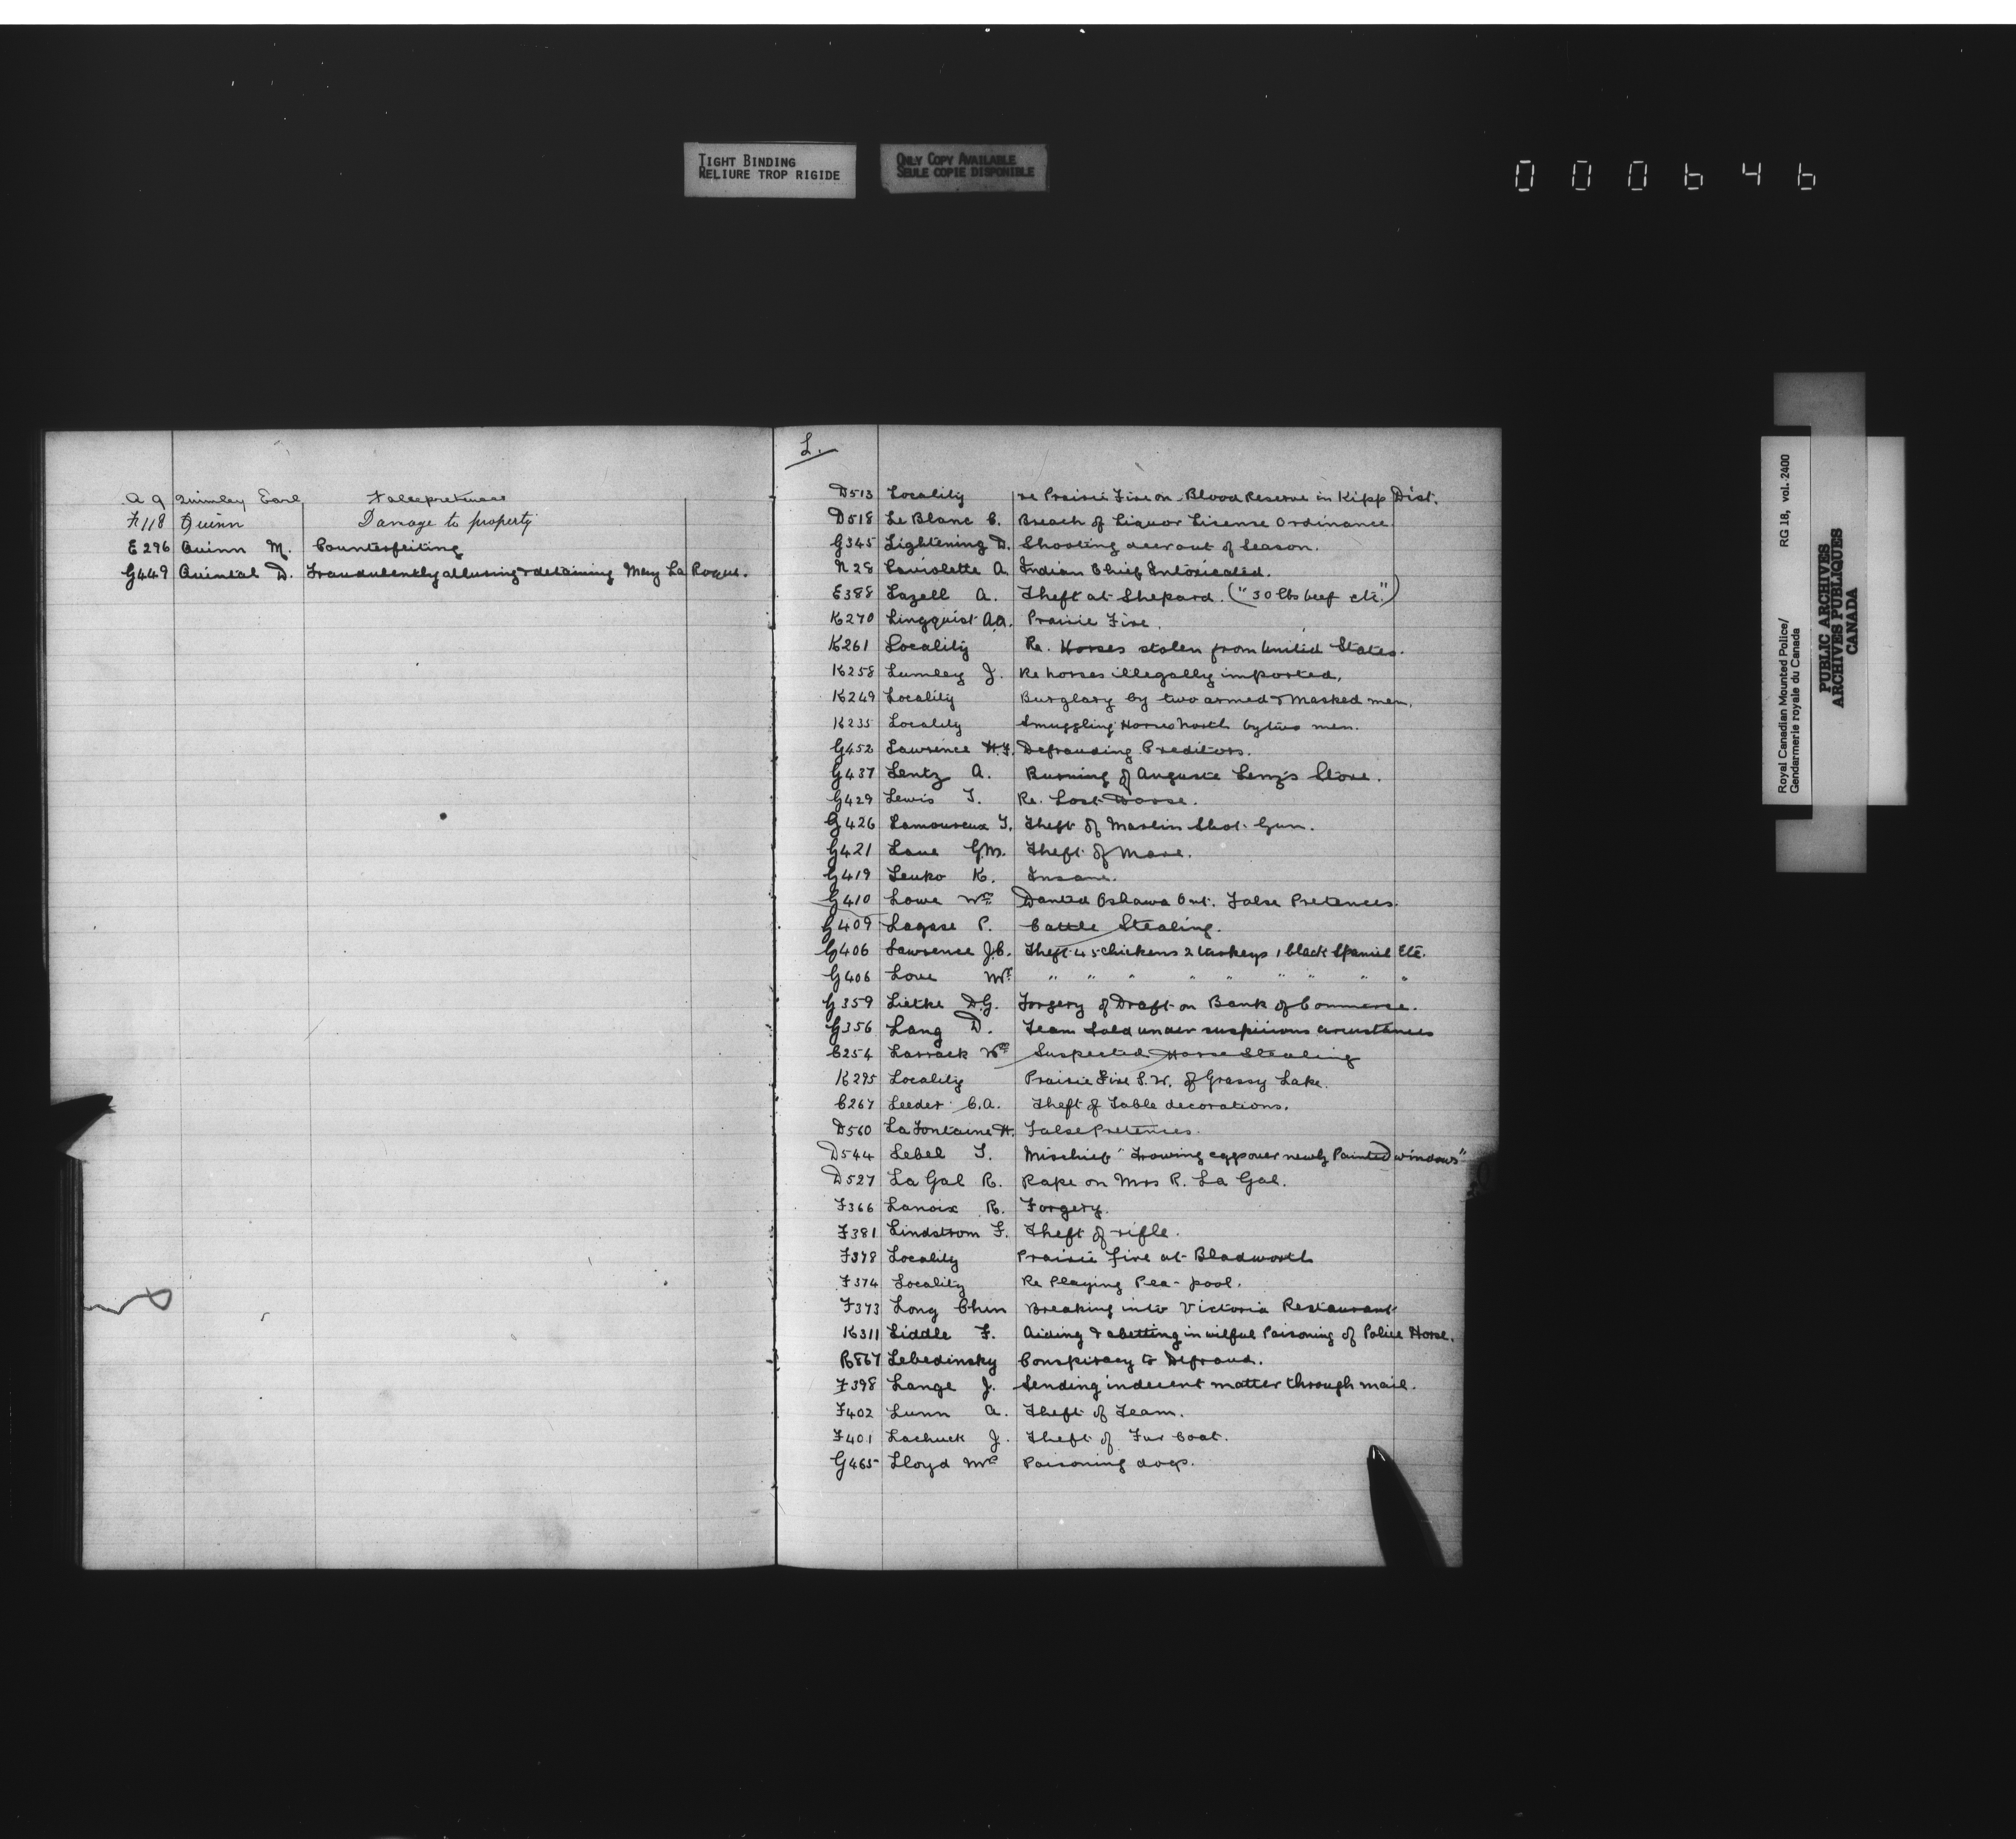 TIGHT BINDING
RELIURE TROP RIGIDE
ONLY COPY AVAILABLE
SEULE COPIE DISPONIBLE
000646
A 9 Quimley Earl False pretenses
F118 Quinn Damage to property
E296 Quinn M. Counterfeiting
G449 Quintal D. Fraudulently alluring & detaining Mary La Roque.
L.
D513 Locality re Prairie Fire on Blood Reserve in Kipp Dist.
D518 Le Blanc C. Breach of Liquor Lisense Ordinance.
G345 Lightening D. Shooting deer out of Season.
N28 Laviolette A. Indian Chief Intoxicated.
E388 Lazell A. Theft at Shepard. ("30 lbs beef etc.")
K270 Lingquist A.A. Prairie Fire.
K261 Locality Re. Horses stolen from United States.
K258 Lumley J. Re horses illegally imported.
K249 Locality Burglary by two armed & Masked men.
K235 Locality Smuggling Horses North by two men.
G452 Lawrence H.F. Defrauding Creditors.
G437 Lentz A. Burning of Auguste Lenz's Store.
G429 Lewis T. Re. Lost Horse.
G426 Lamoureux T. Theft of Marlin Shot Gun.
G421 Lane G.M. Theft of Mare.
G419 Leuko K. Insane.
G410 Lowe Wm Wanted Oshawa Ont. False Pretences.
G409 Lagase P. Cattle Stealing.
G406 Lawrence J.C. Theft 45 chickens 2 turkeys 1 black Spaniel Etc.
G406 Love Mr " " " " " " " " "
G359 Lietke D.G. Forgery of Draft on Bank of Commerce.
G356 Lang D. Team Sold under suspicious circustances
C254 Larrack Wm Suspected Horse Stealing
K295 Locality Prairie Fire S.W. of Grassy Lake.
C267 Leeder C.A. Theft of Table decorations.
D560 La Fontaine H. False Pretences.
D544 Lebel T. Mischief "Trowing eggs over newly Painted windows"
D527 La Gal R. Rape on Mrs R. La Gal.
F366 Lanoix R. Forgery.
F381 Lindstrom F. Theft of rifle.
F378 Locality Prairie fire at Bladworth
F374 Locality Re Playing Pea-pool.
F373 Long Chun Breaking into Victoria Restaurant
K311 Liddle F. Aiding & abetting in wilful Poisoning of Police Horse.
R867 Lebedinsky Conspiracy to Defraud.
F398 Lange J. Sending indecent matter through mail.
F402 Lunn A. Theft of Team.
F401 Lachuck J. Theft of Fur Coat.
G465 Lloyd Mr Poisoning dogs.
Royal Canadian Mounted Police/
Gendarmerie royale du Canada
RG 18, vol. 2400
PUBLIC ARCHIVES
ARCHIVES PUBLIQUES
CANADA